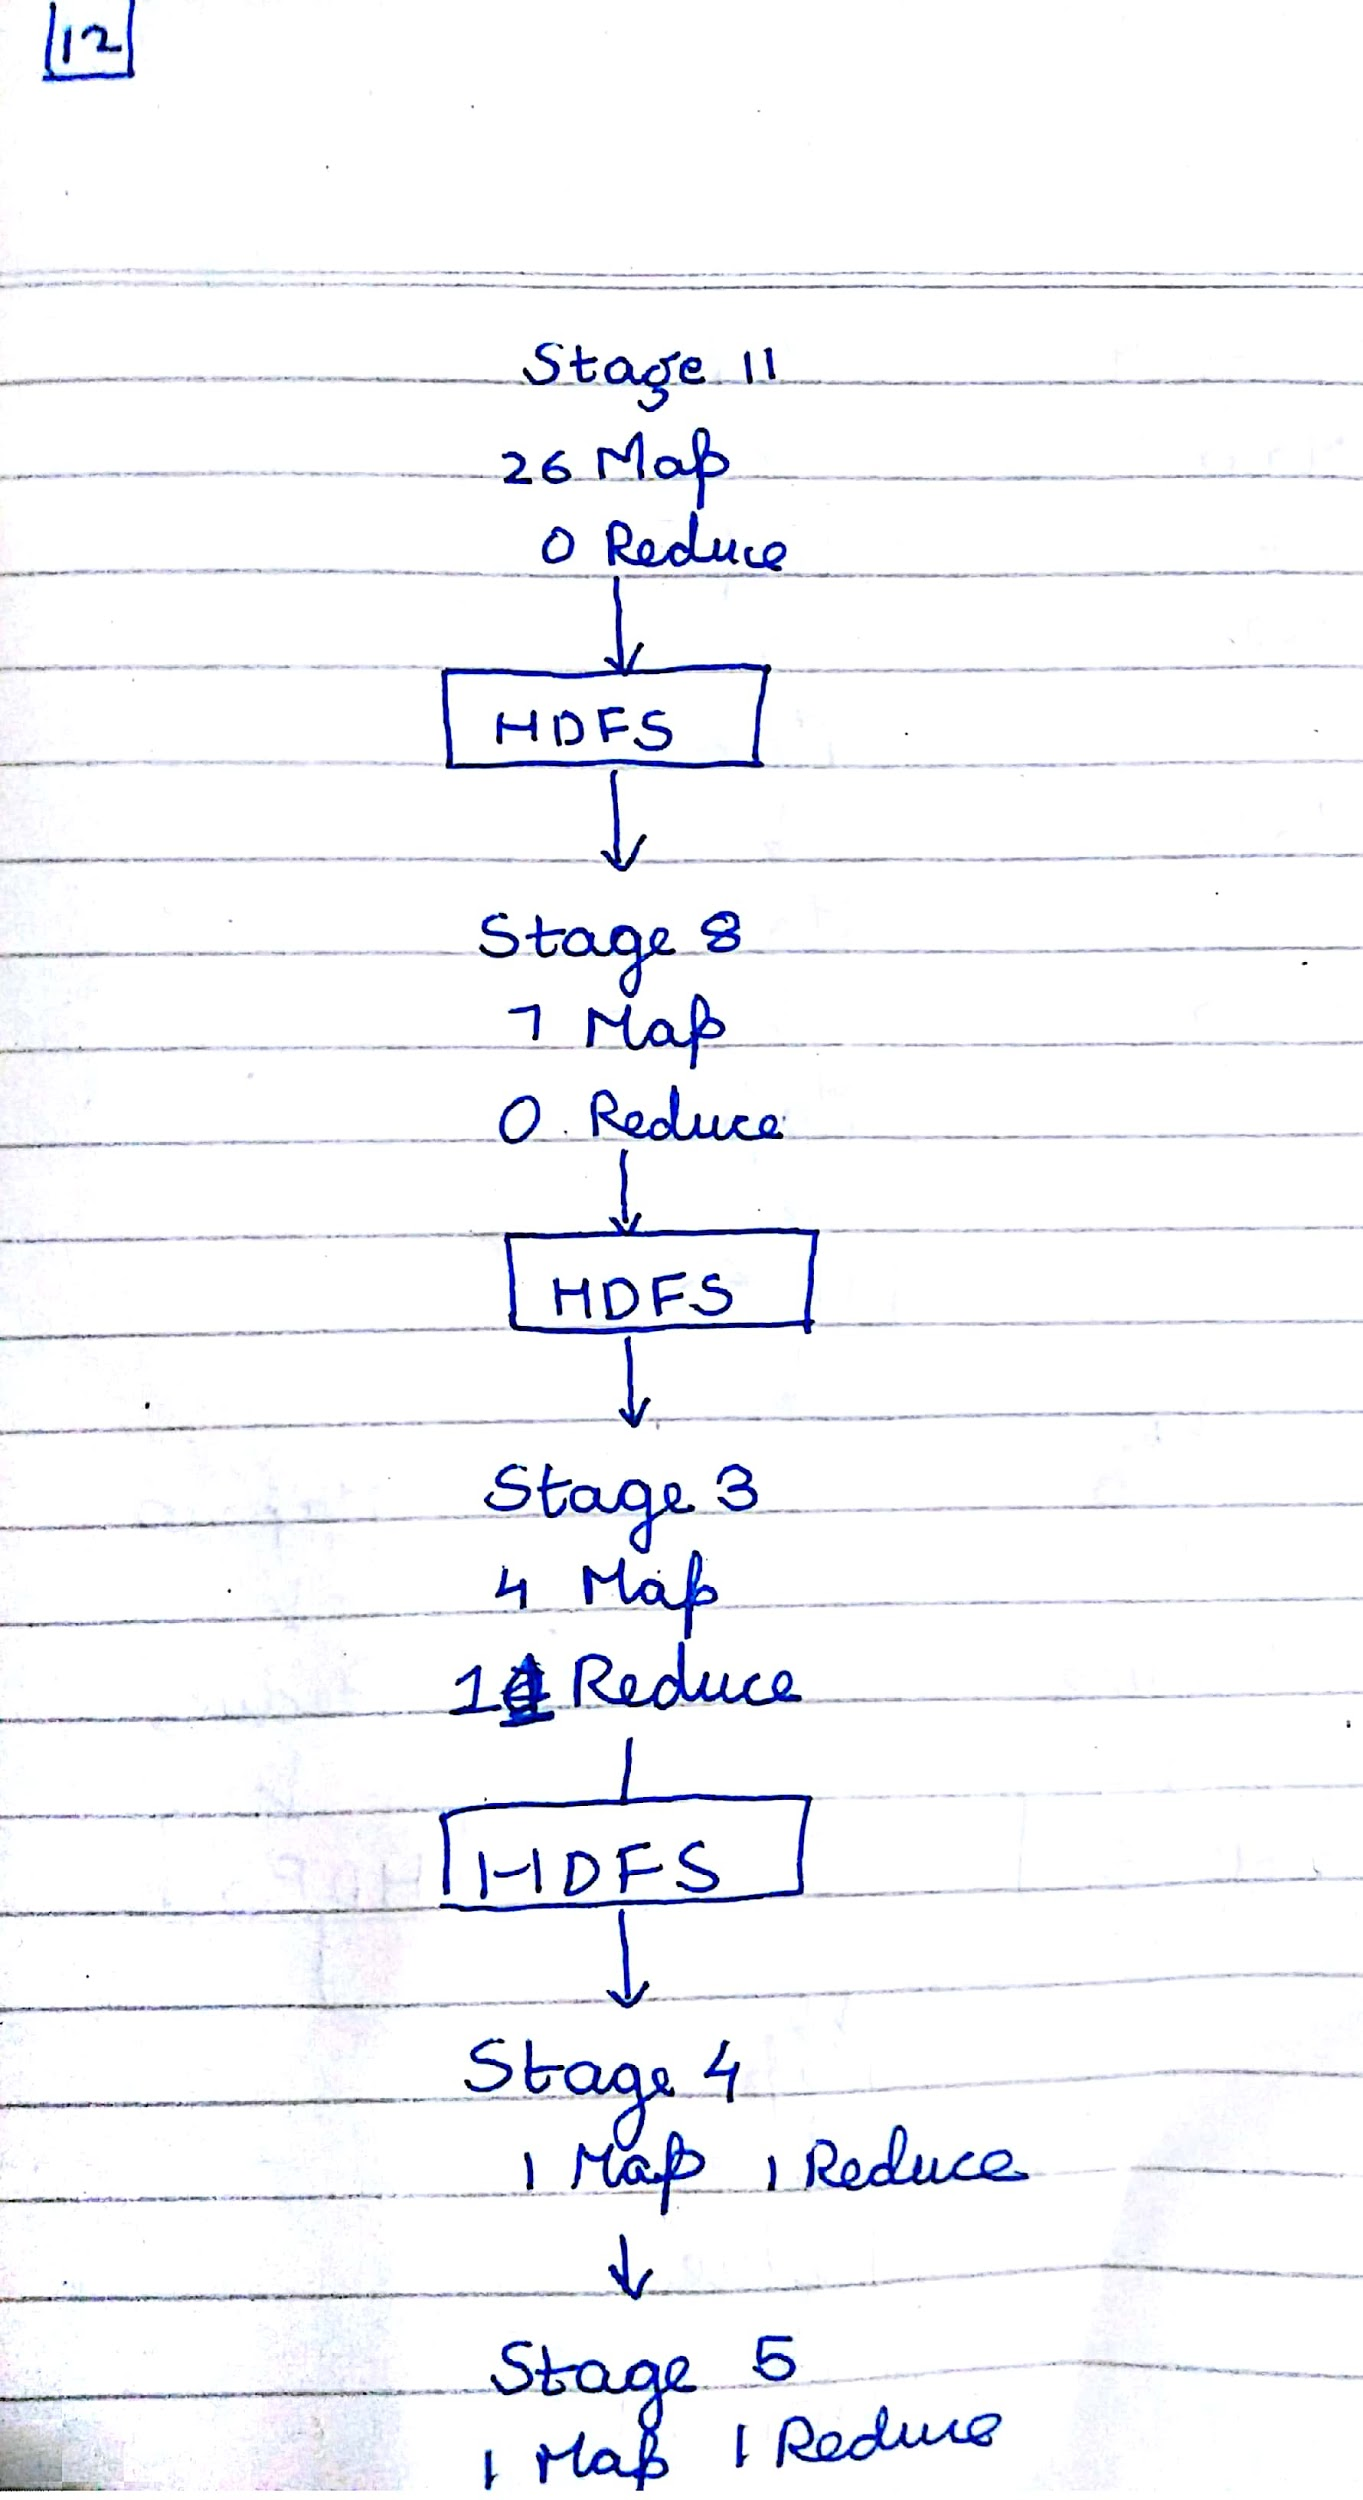 12
Stage 11
26 Map
0 Reduce
HDFS
Stage 8
7 Map
0 Reduce
HDFS
Stage 3
4 Map
1 Reduce
HDFS
Stage 4
1 Map 1 Reduce
Stage 5
1 Map 1 Reduce